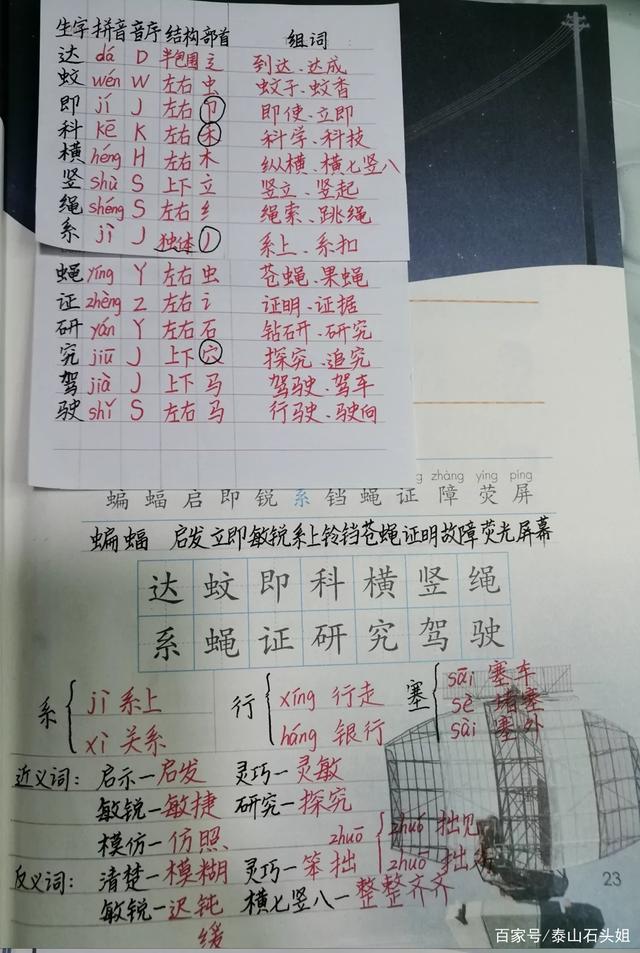 生字 拼音 音序 结构 部首 组词
达 dá D 半包围 辶 到达、达成
蚊 wén W 左右 虫 蚊子、蚊香
即 jí J 左右 卩 即使、立即
科 kē K 左右 禾 科学、科技
横 héng H 左右 木 纵横、横七竖八
竖 shù S 上下 立 竖立、竖起
绳 shéng S 左右 纟 绳索、跳绳
系 jì J 独体 丿 系上、系扣
蝇 yíng Y 左右 虫 苍蝇、果蝇
证 zhèng Z 左右 讠 证明、证据
研 yán Y 左右 石 钻研、研究
究 jiū J 上下 穴 探究、追究
驾 jià J 上下 马 驾驶、驾车
驶 shǐ S 左右 马 行驶、驶向
zhàng yíng píng
蝙 蝠 启 即 锐 系 铛 蝇 证 障 荧 屏
蝙蝠 启发 立即 敏锐 系上 铃铛 苍蝇 证明 故障 荧光屏幕
达 蚊 即 科 横 竖 绳
系 蝇 证 研 究 驾 驶
系 jì 系上 xì 关系
行 xíng 行走 háng 银行
塞 sāi 塞车 sè 堵塞 sài 塞外
近义词：启示—启发 灵巧—灵敏
敏锐—敏捷 研究—探究
模仿—仿照
zhuō zhuó 拙见 zhuō 拙
反义词：清楚—模糊 灵巧—笨拙
敏锐—迟钝 横七竖八—整整齐齐
缓
23
百家号/泰山石头姐